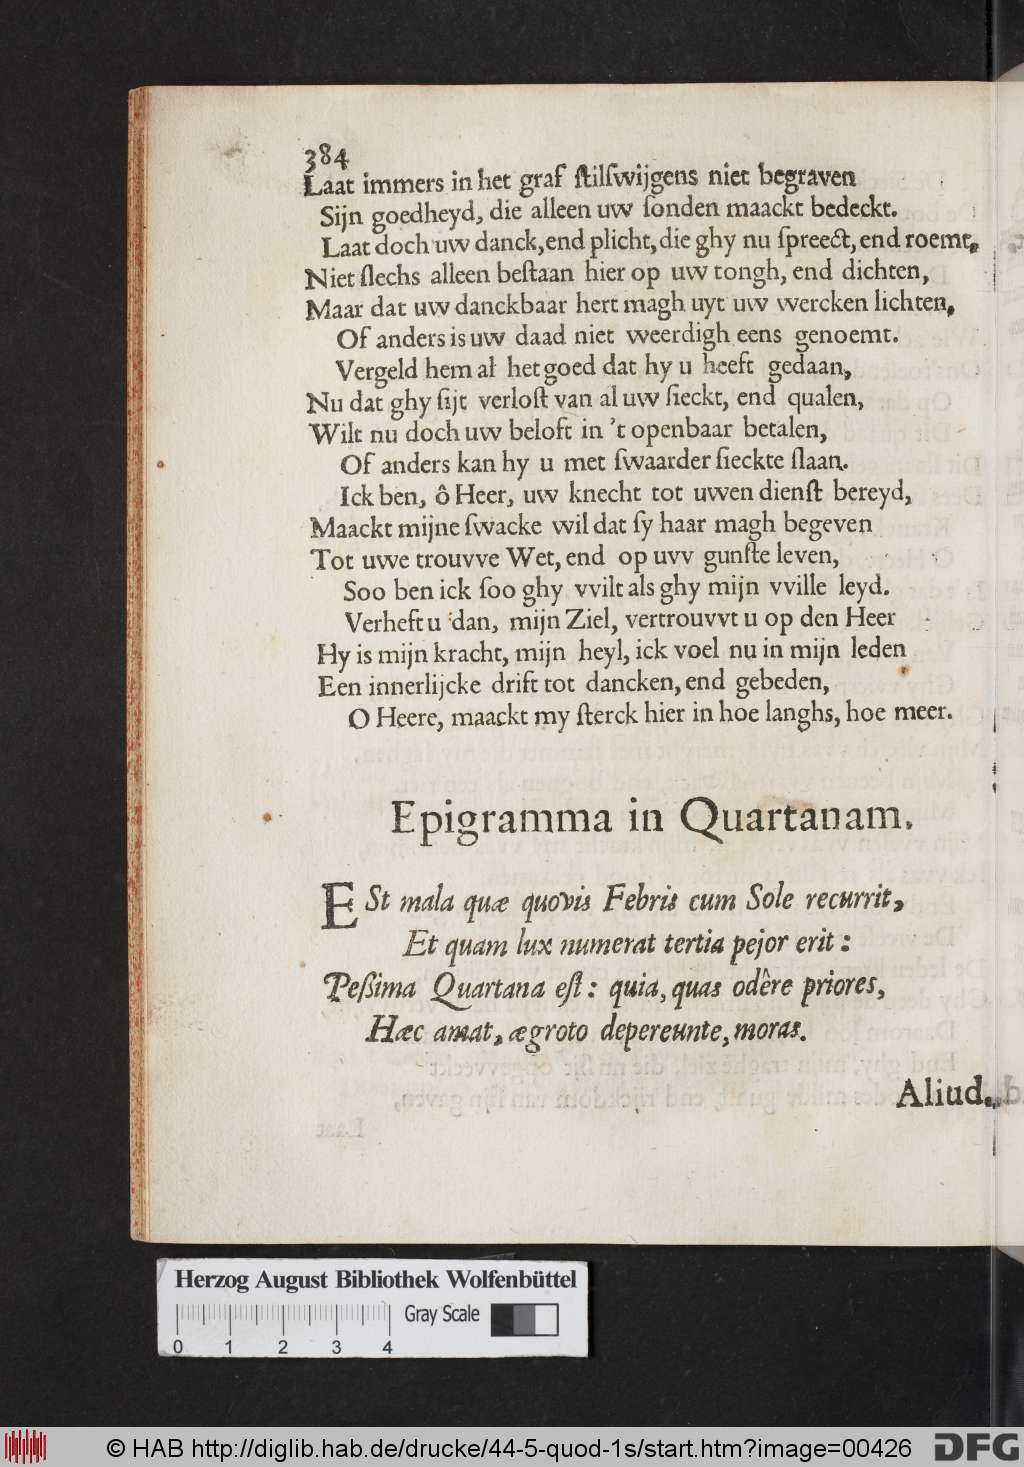 384
Laat immers in het graf ſtilſwijgens niet begraven
Sijn goedheyd, die alleen uw ſonden maackt bedeckt.
Laat doch uw danck, end plicht, die ghy nu ſpreect, end roemt,
Niet ſlechs alleen beſtaan hier op uw tongh, end dichten,
Maar dat uw danckbaar hert magh uyt uw wercken lichten,
Of anders is uw daad niet weerdigh eens genoemt.
Vergeld hem al het goed dat hy u heeft gedaan,
Nu dat ghy ſijt verloſt van al uw ſieckt, end qualen,
Wilt nu doch uw beloft in 't openbaar betalen,
Of anders kan hy u met ſwaarder ſieckte ſlaan.
Ick ben, ô Heer, uw knecht tot uwen dienſt bereyd,
Maackt mijne ſwacke wil dat ſy haar magh begeven
Tot uwe trouvve Wet, end op uvv gunſte leven,
Soo ben ick ſoo ghy vvilt als ghy mijn vville leyd.
Verheft u dan, mijn Ziel, vertrouvvt u op den Heer
Hy is mijn kracht, mijn heyl, ick voel nu in mijn leden
Een innerlijcke drift tot dancken, end gebeden,
O Heere, maackt my ſterck hier in hoe langhs, hoe meer.
Epigramma in Quartanam.
ESt mala quæ quovis Febris cum Sole recurrit,
Et quam lux numerat tertia pejor erit:
Peßima Quartana eſt: quia, quas odêre priores,
Hæc amat, ægroto depereunte, moras.
Aliud.
Herzog August Bibliothek Wolfenbüttel
Gray Scale
0 1 2 3 4
© HAB http://diglib.hab.de/drucke/44-5-quod-1s/start.htm?image=00426
DFG